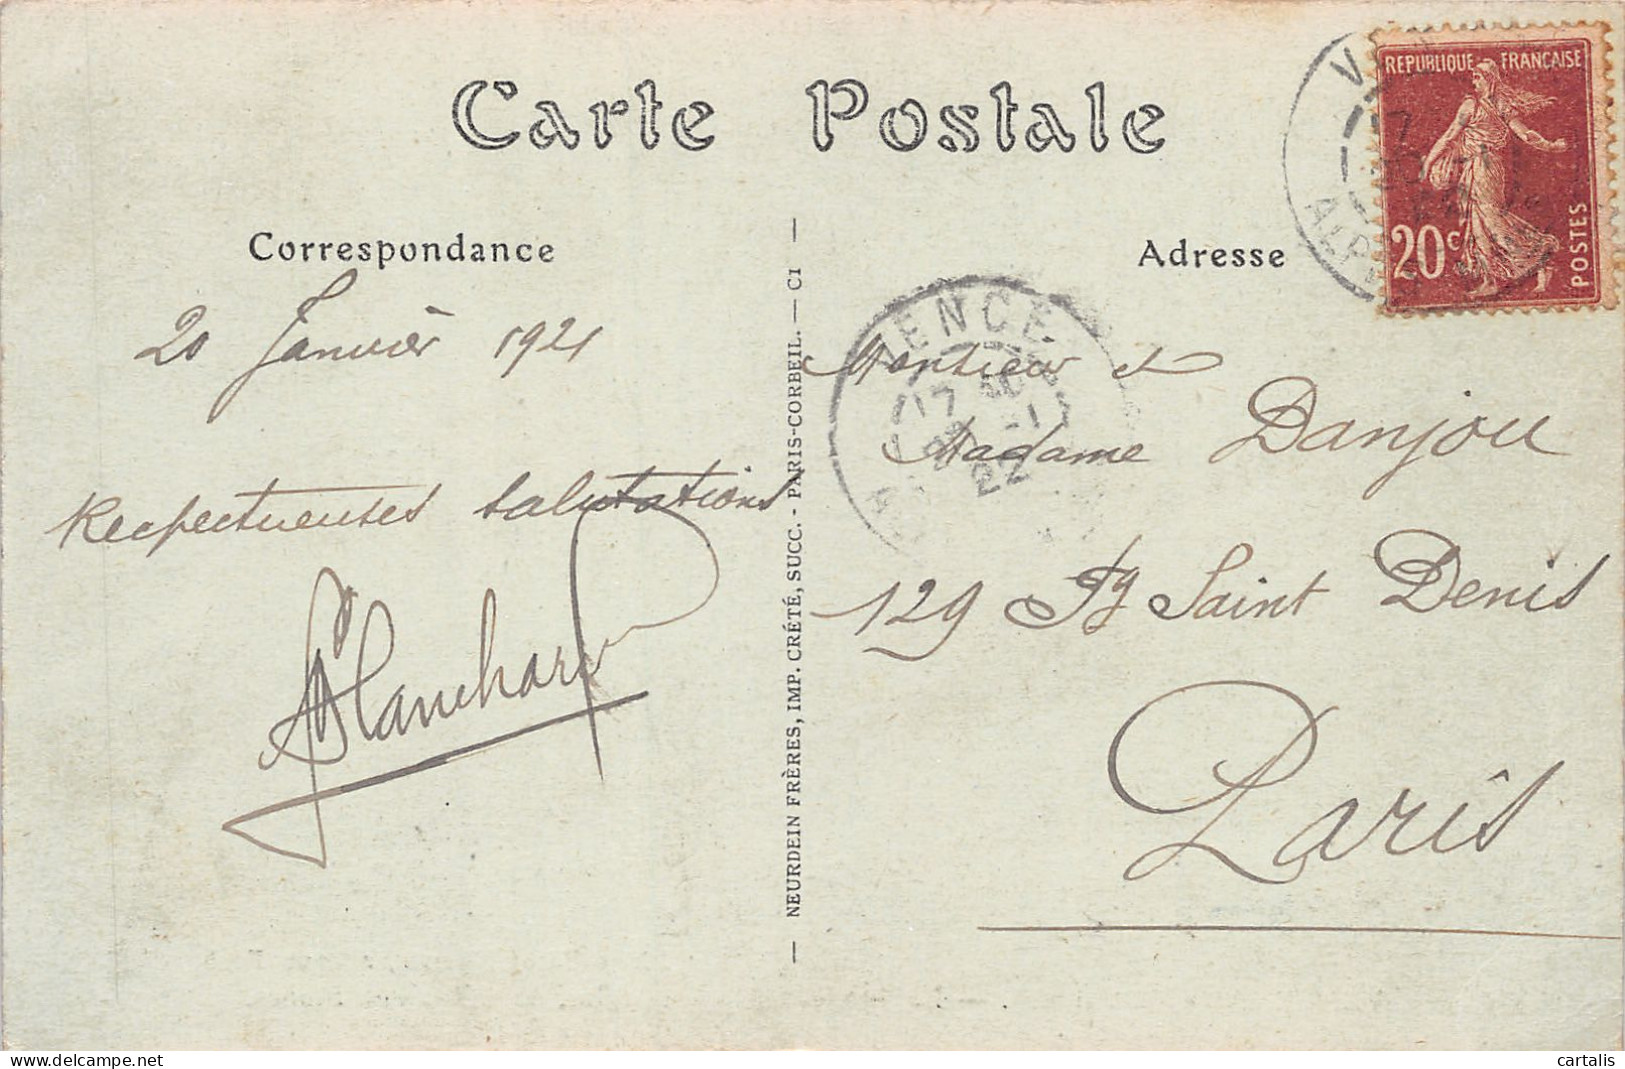 Carte Postale
Correspondance
Adresse
REPUBLIQUE FRANÇAISE
20c
POSTES
VENCE
17
-1
22
20 Janvièr 1921
Respectueuses salutations
Blanchard
NEURDEIN FRÈRES, IMP. CRÉTÉ, SUCC. - PARIS-CORBEIL. — C1
Monsieur et
Madame Danjou
129 Fg Saint Denis
Paris
delcampe.net
cartalis